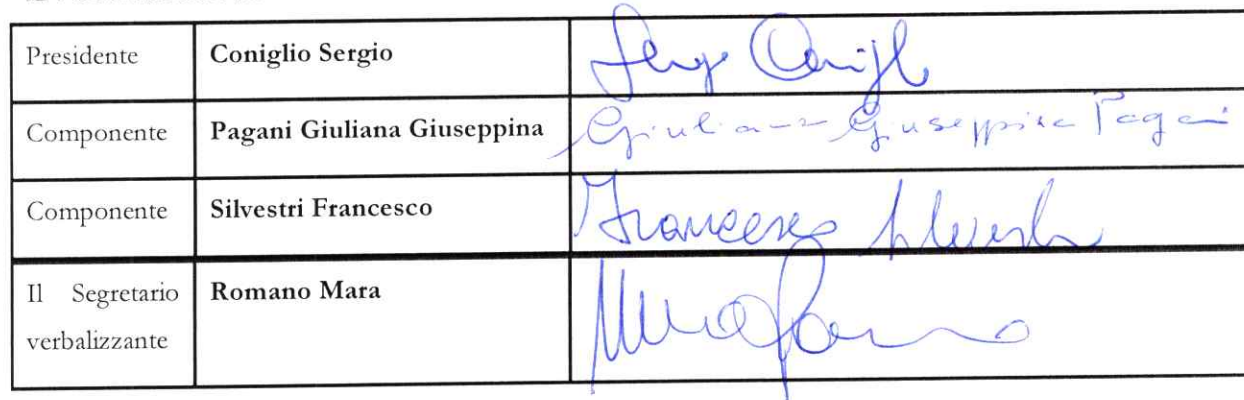 Presidente Coniglio Sergio Sergio Coniglio
Componente Pagani Giuliana Giuseppina Giuliana Giuseppina Pagani
Componente Silvestri Francesco Francesco Silvestri
Il Segretario Romano Mara Mara Romano
verbalizzante